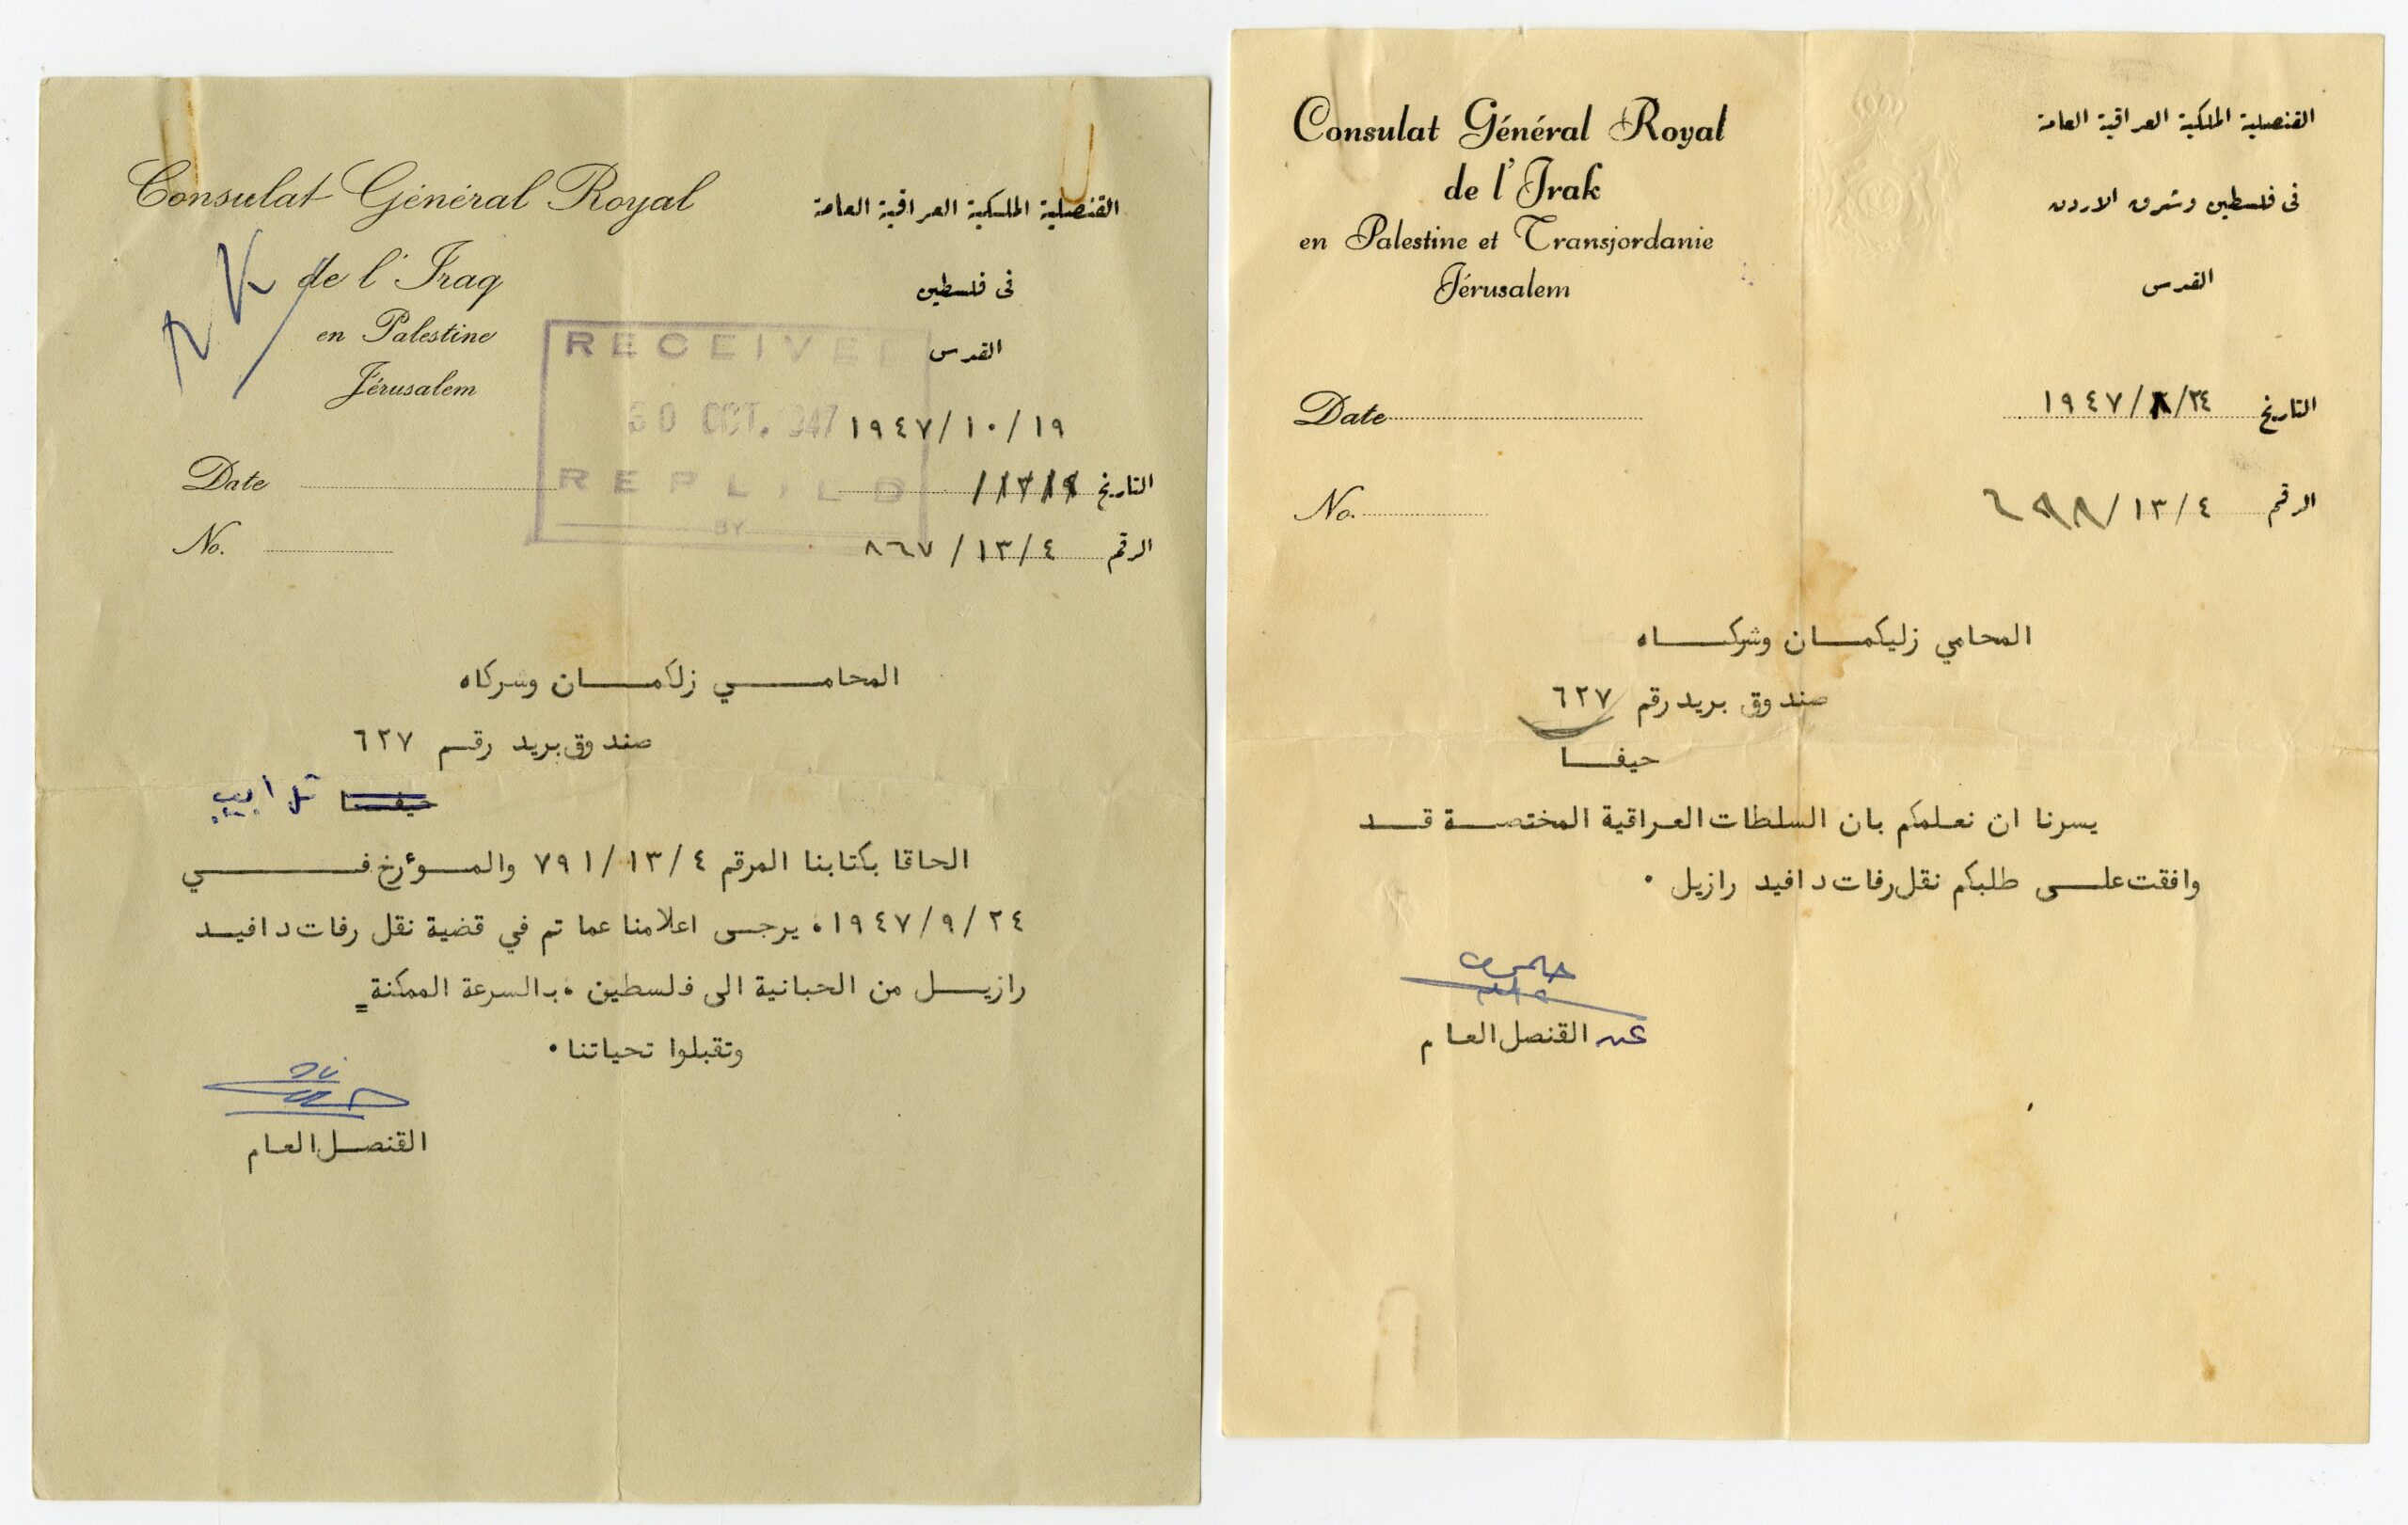 Consulat Général Royal
de l'Iraq
en Palestine
Jérusalem
القنصلية الملكية العراقية العامة
فى فلسطين
القدس
RECEIVED
30 OCT. 1947
REPLIED
BY
١٩٤٧/١٠/١٩
Date
التاريخ
No.
الرقم ٨٦٧/١٣/٤
المحامي زلكمان وشركاه
صندوق بريد رقم ٦٢٧
حيفا تل ابيب
الحاقا بكتابنا المرقم ٧٩١/١٣/٤ والموٴرخ في
١٩٤٧/٩/٢٤، يرجى اعلامنا عما تم في قضية نقل رفات دافيد
رازيل من الحبانية الى فلسطين، بالسرعة الممكنة
وتقبلوا تحياتنا.
القنصل العام
Consulat Général Royal
de l'Irak
en Palestine et Transjordanie
Jérusalem
القنصلية الملكية العراقية العامة
فى فلسطين وشرق الاردن
القدس
Date
التاريخ ١٩٤٧/٨/٢٤
No.
الرقم ٦٩٨/١٣/٤
المحامي زليكمان وشركاه
صندوق بريد رقم ٦٢٧
حيفا
يسرنا ان نعلمكم بان السلطات العراقية المختصة قد
وافقت على طلبكم نقل رفات دافيد رازيل .
عن القنصل العام